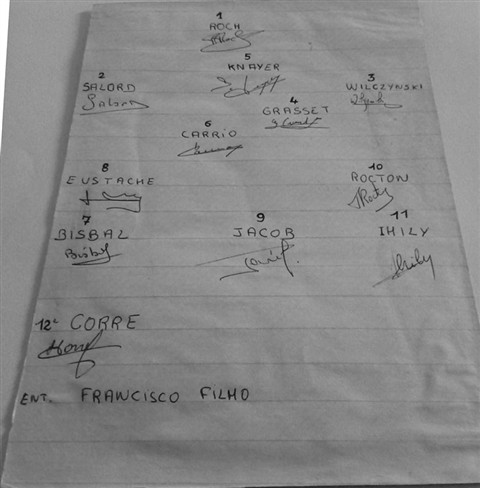 1
ROCH
5
KNAYER
2
SALORD
3
WILCZYNSKI
4
GRASSET
6
CARRIO
8
EUSTACHE
10
ROCTON
7
BISBAL
9
JACOB
11
IHILY
12e CORRE
ENT. FRANCISCO FILHO